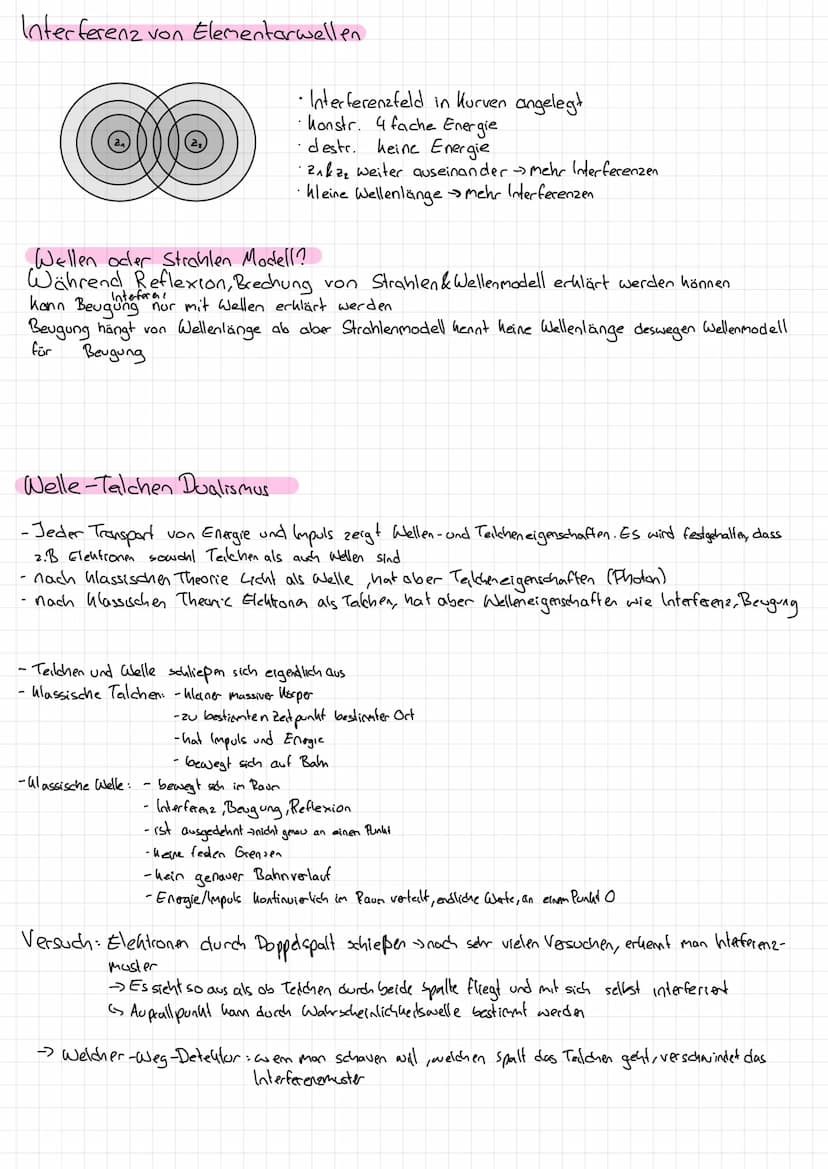 Interferenz von Elementarwellen
z₁ z₂
· Interferenzfeld in Kurven angelegt
· konstr. 4 fache Energie
· destr. keine Energie
· z₁ & z₂ weiter auseinander → mehr Interferenzen
· kleine Wellenlänge → mehr Interferenzen
Wellen oder Strahlen Modell?
Während Reflexion, Brechung von Strahlen & Wellenmodell erklärt werden können
kann Beugung nur mit Wellen erklärt werden
Beugung hängt von Wellenlänge ab aber Strahlenmodell kennt keine Wellenlänge deswegen Wellenmodell
für Beugung
Welle-Teilchen Dualismus
- Jeder Transport von Energie und Impuls zeigt Wellen- und Teilcheneigenschaften. Es wird festgehalten, dass
z.B Elektronen sowohl Teilchen als auch Wellen sind
- nach klassischen Theorie Licht als Welle, hat aber Teilcheneigenschaften (Photon)
- nach klassischen Theorie Elektronen als Teilchen, hat aber Welleneigenschaften wie Interferenz, Beugung
- Teilchen und Welle schließen sich eigendlich aus
- klassische Teilchen: - kleiner massiver Körper
- zu bestimten Zeitpunkt bestimmter Ort
- hat Impuls und Energie
- bewegt sich auf Bahn
- klassische Welle: - bewegt sich im Raum
- Interferenz, Beugung, Reflexion
- ist ausgedehnt → nicht genau an einen Punkt
- keine festen Grenzen
- kein genauer Bahnverlauf
- Energie/Impuls kontinuierlich im Raum verteilt, endliche Werte, an einem Punkt 0
Versuch: Elektronen durch Doppelspalt schießen → nach sehr vielen Versuchen, erkennt man Interferenz-
muster
→ Es sieht so aus als ob Teilchen durch beide Spalte fliegt und mit sich selbst interferiert
↳ Auprallpunkt kann durch Wahrscheinlichkeitswelle bestimmt werden
→ Welcher-Weg-Detektor: wenn man schauen will, welchen Spalt das Teilchen geht, verschwindet das
Interferenzmuster